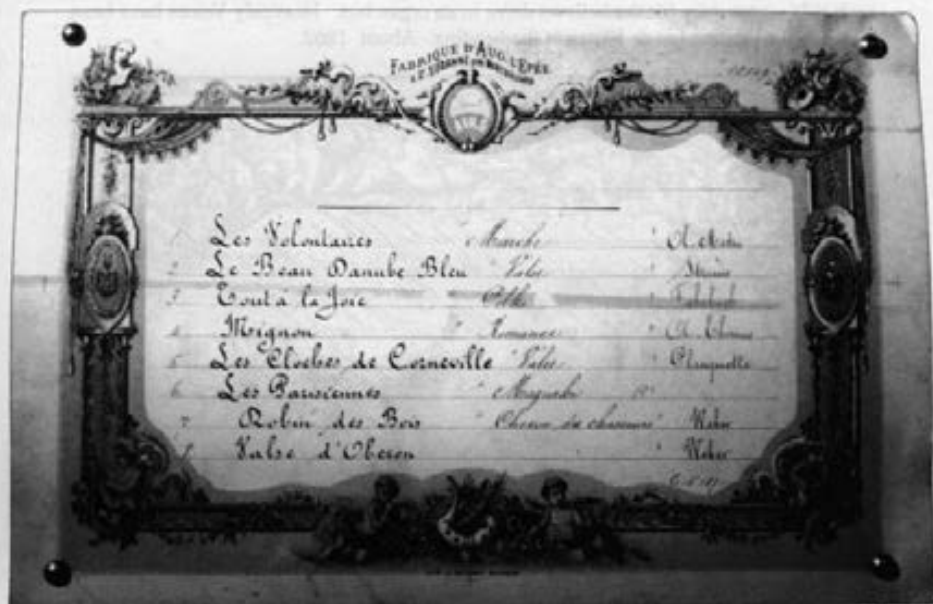 FABRIQUE D'AUG. L'EPÉE
A STE SUZANNE PRÈS MONTBÉLIARD
1 Les Volontaires " Marche " O. Métra
2 Le Beau Danube Bleu " Valse " Strauss
3 Tout à la Joie " Polka " Fahrbach
4 Mignon " Romance " A. Thomas
5 Les Cloches de Corneville " Valse " Planquette
6 Les Parisiennes " Mazurka
7 Robin des Bois " Chœur des chasseurs " Weber
8 Valse d'Oberon " Weber